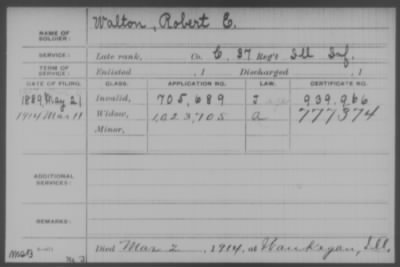 NAME OF SOLDIER: Walton, Robert E.
SERVICE: Late rank, Co. C, 37 Reg't Ill Inf.
TERM OF SERVICE: Enlisted , 1 Discharged , 1
DATE OF FILING. CLASS. APPLICATION NO. LAW. CERTIFICATE NO.
1889, May 21 Invalid, 705,689 939,966
1914 Mar 11 Widow, 1,023,705 a 777374
Minor,
ADDITIONAL SERVICES:
REMARKS:
Died Mar 2, 1914, at Waukegan, Ill.